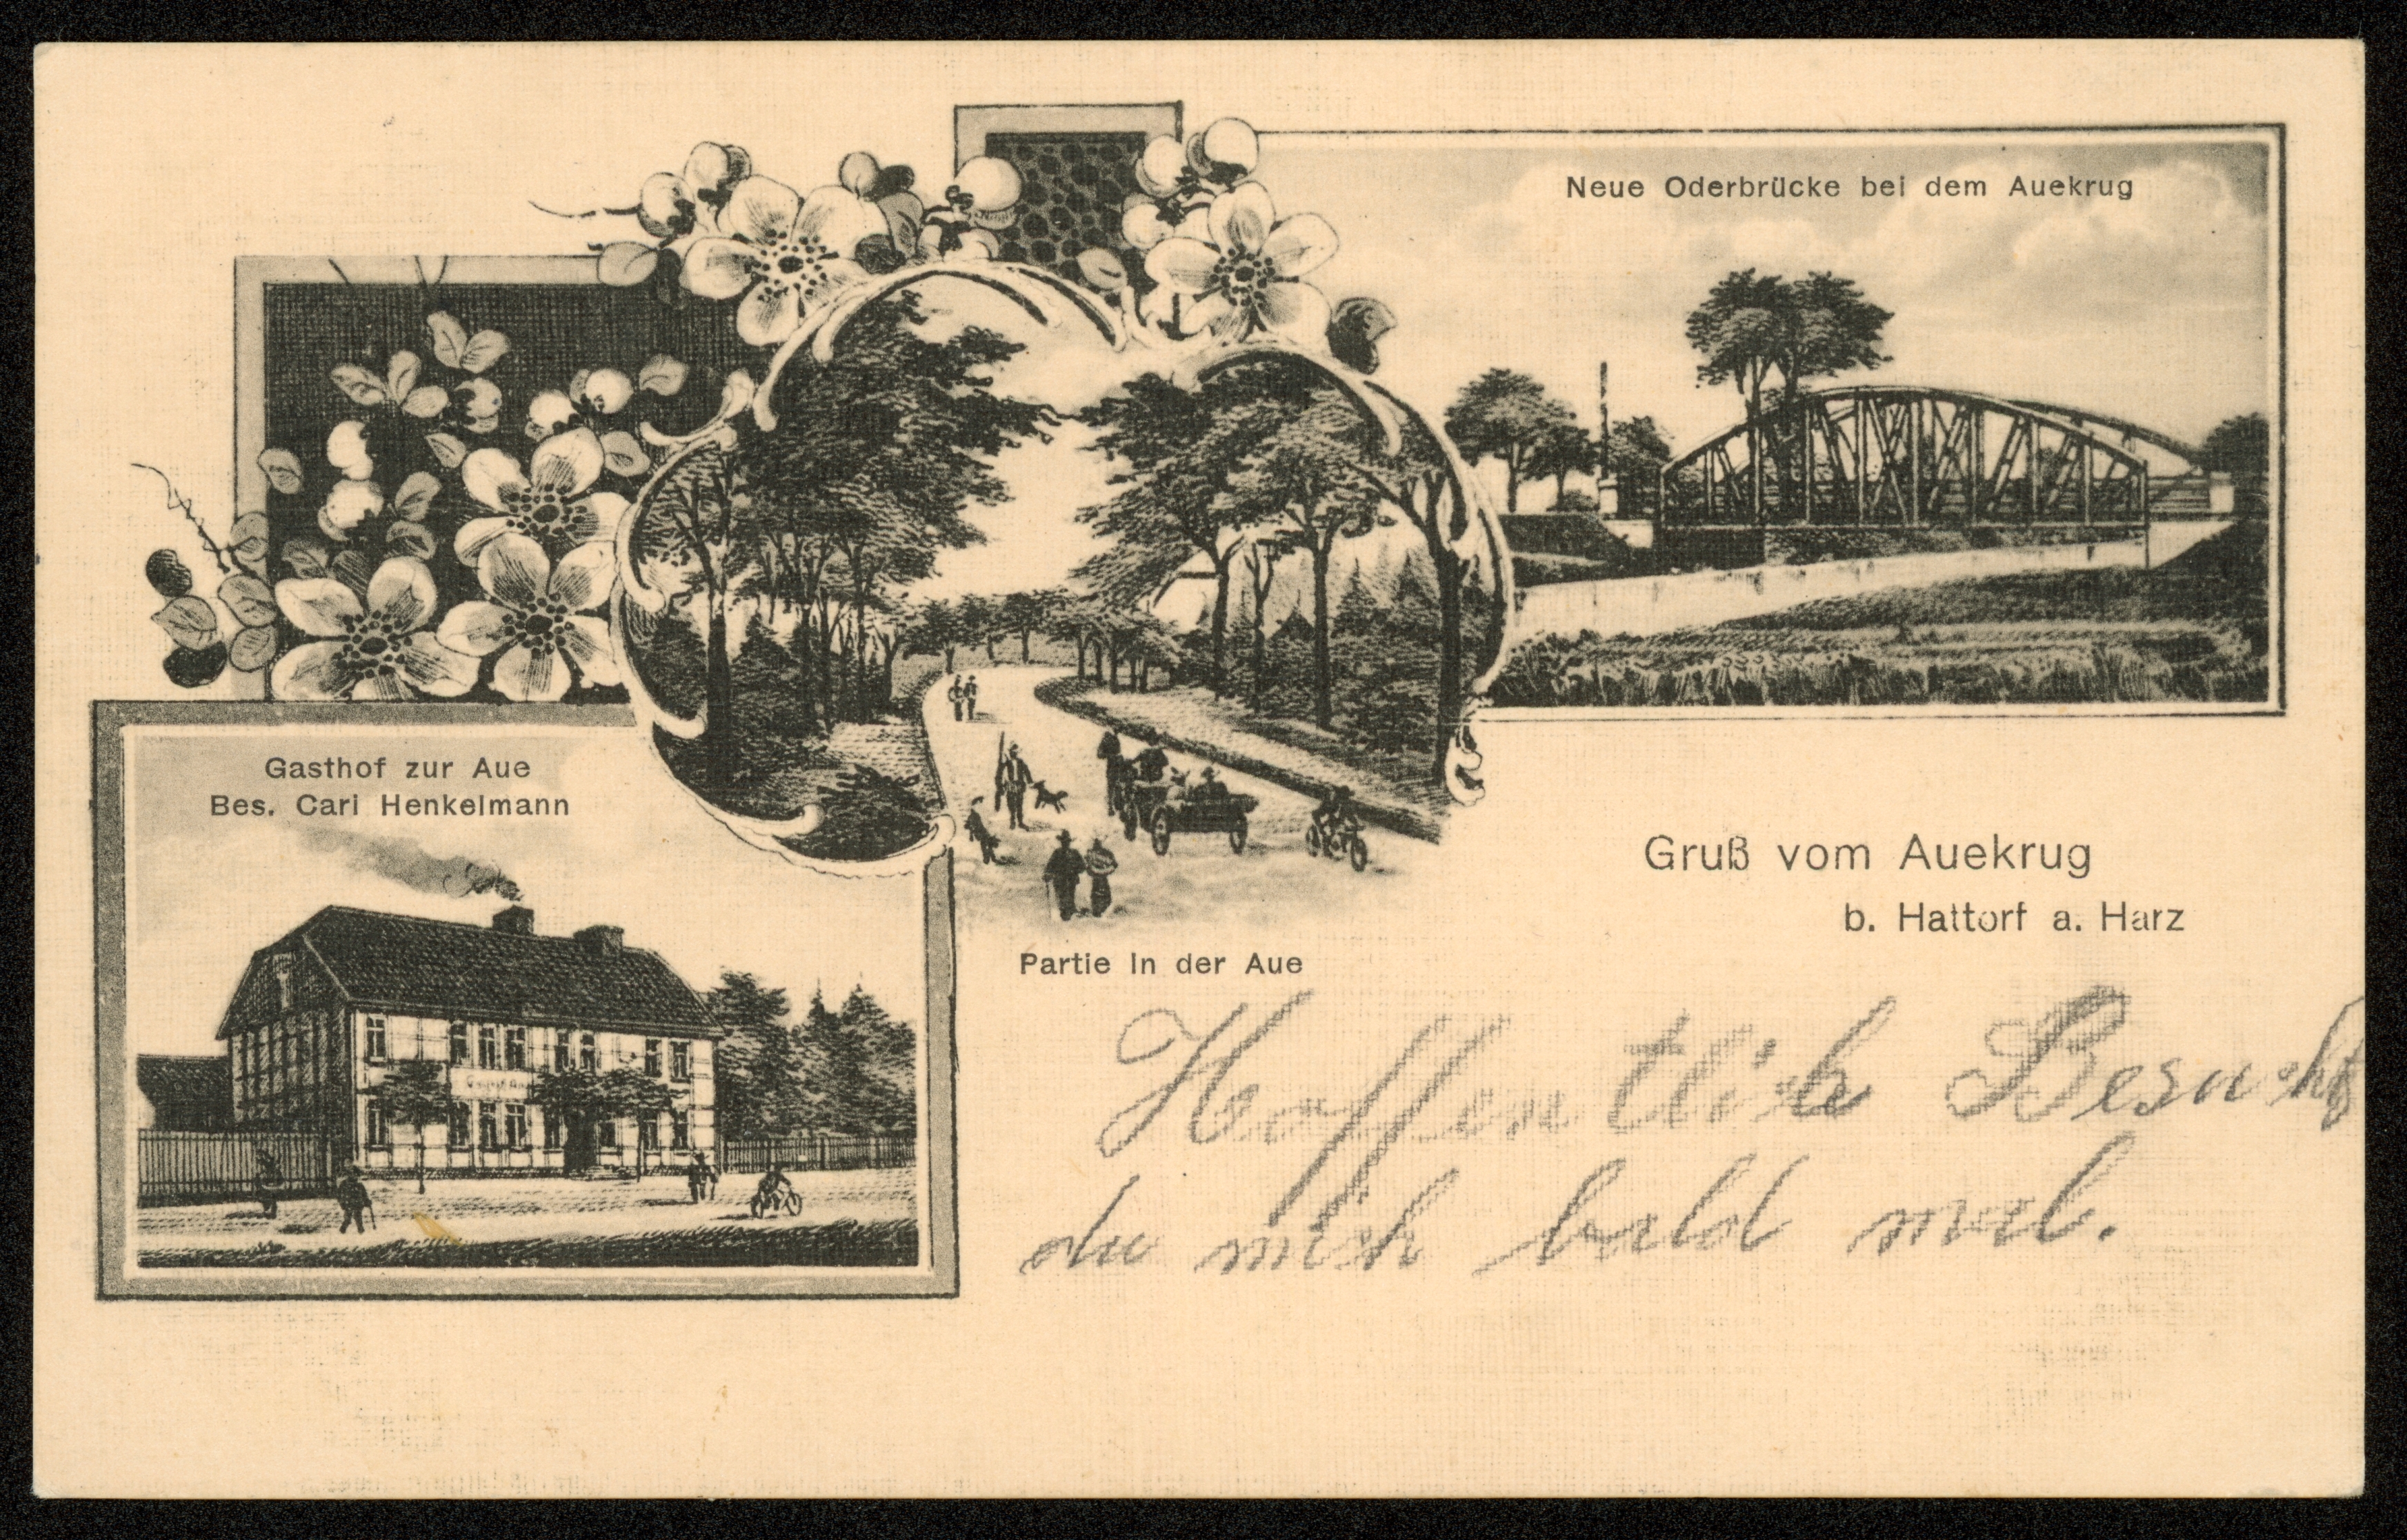 Neue Oderbrücke bei dem Auekrug
Gasthof zur Aue
Bes. Carl Henkelmann
Gruß vom Auekrug
b. Hattorf a. Harz
Partie in der Aue
Hoffentlich Besuchst
du mich bald mal.